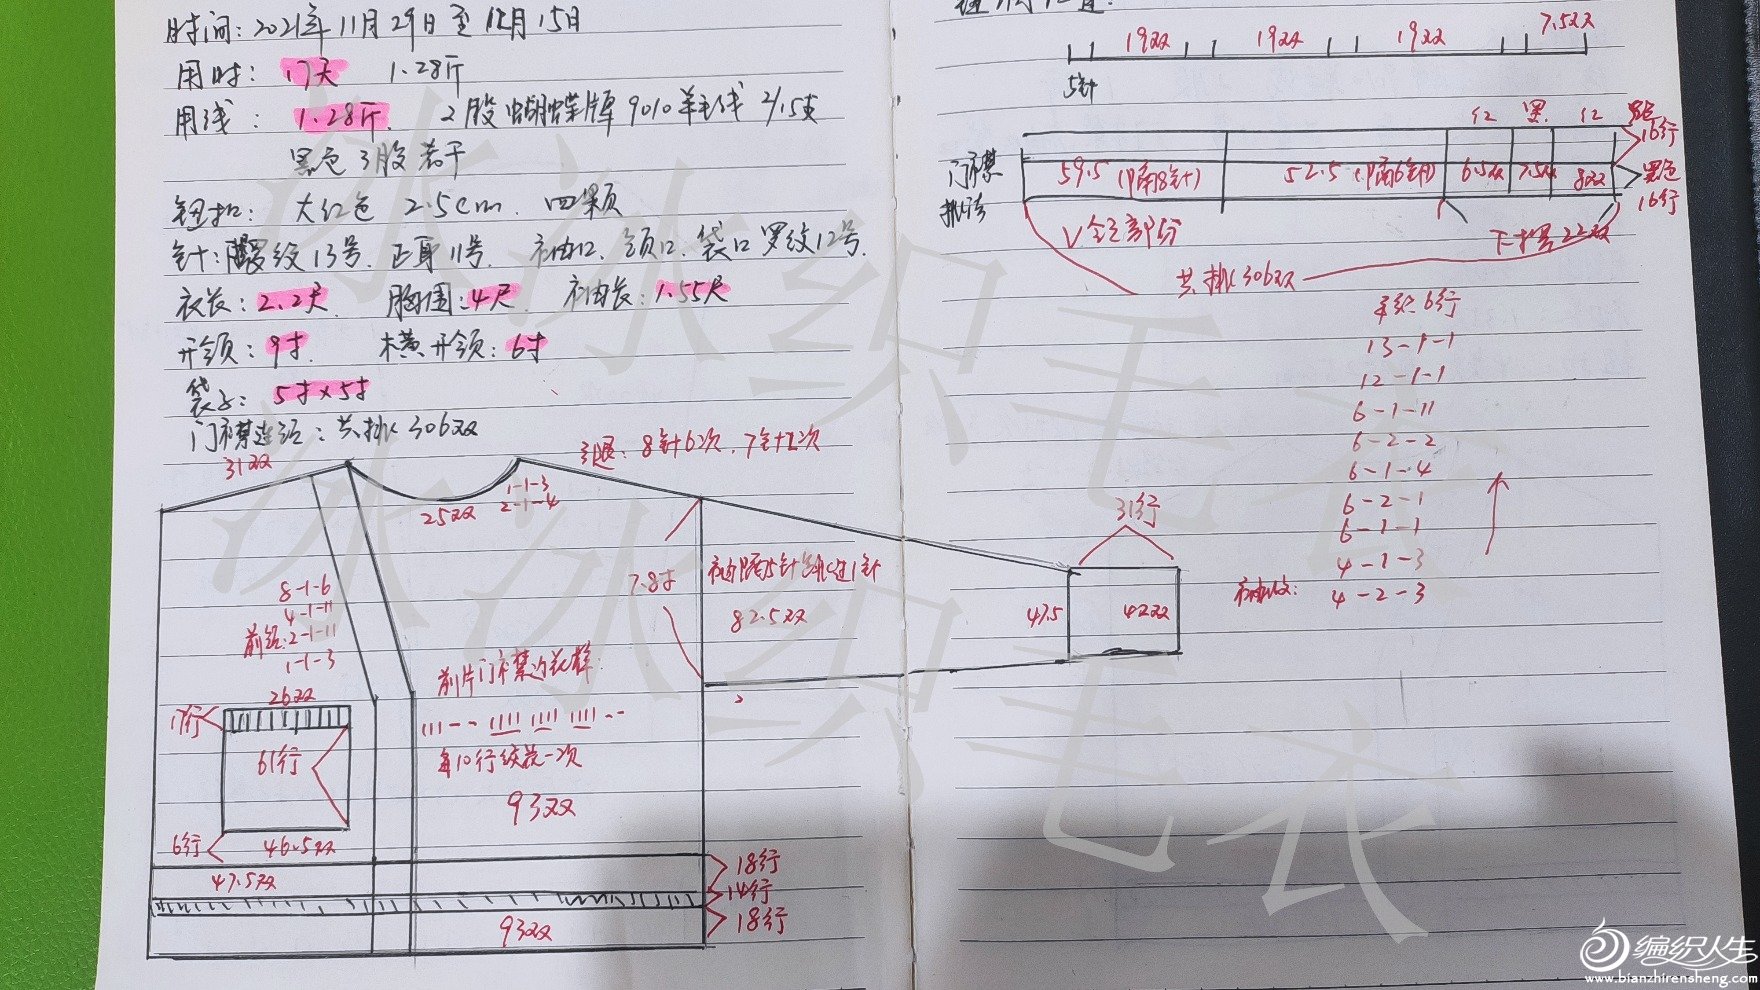 时间: 2021年11月29日至12月15日
用时: 17天 1.28斤
用线: 1.28斤. 2股蝴蝶牌9010羊毛线 2/15支
黑色3股若干
钮扣: 大红色 2.5cm. 四颗
针: 罗纹13号. 正身11号. 袖口、领口、袋口罗纹12号.
衣长: 2.2尺. 胸围: 4尺 袖长: 1.55尺
开领: 9寸. 横开领: 6寸
袋子: 5寸×5寸
门襟连领: 共挑306双
31双
引退: 8针6次, 7针2次
1-1-3
2-1-4
25双
8-1-6
4-1-11
前领: 2-1-11
1-1-3
26双
17行
61行
6行
46.5双
47.5双
前片门襟边花样:
每10行绞花一次
93双
93双
18行
14行
18行
7.8寸
袖隔5针挑过1针
82.5双
31行
47.5
42双
19双 19双 19双 7.5双
5针
红 黑 红 黑色
16行
门襟
挑法
59.5 (隔8针) 52.5 (隔6针) 6.5双 7.5双 8双
黑色
16行
V领部分
下摆22双
共挑306双
平织6行
13-1-1
12-1-1
6-1-11
6-2-2
6-1-4
6-2-1
6-1-1
4-1-3
袖收: 4-2-3
冰冰织毛衣
冰冰织毛衣
编织人生
www.bianzhirensheng.com